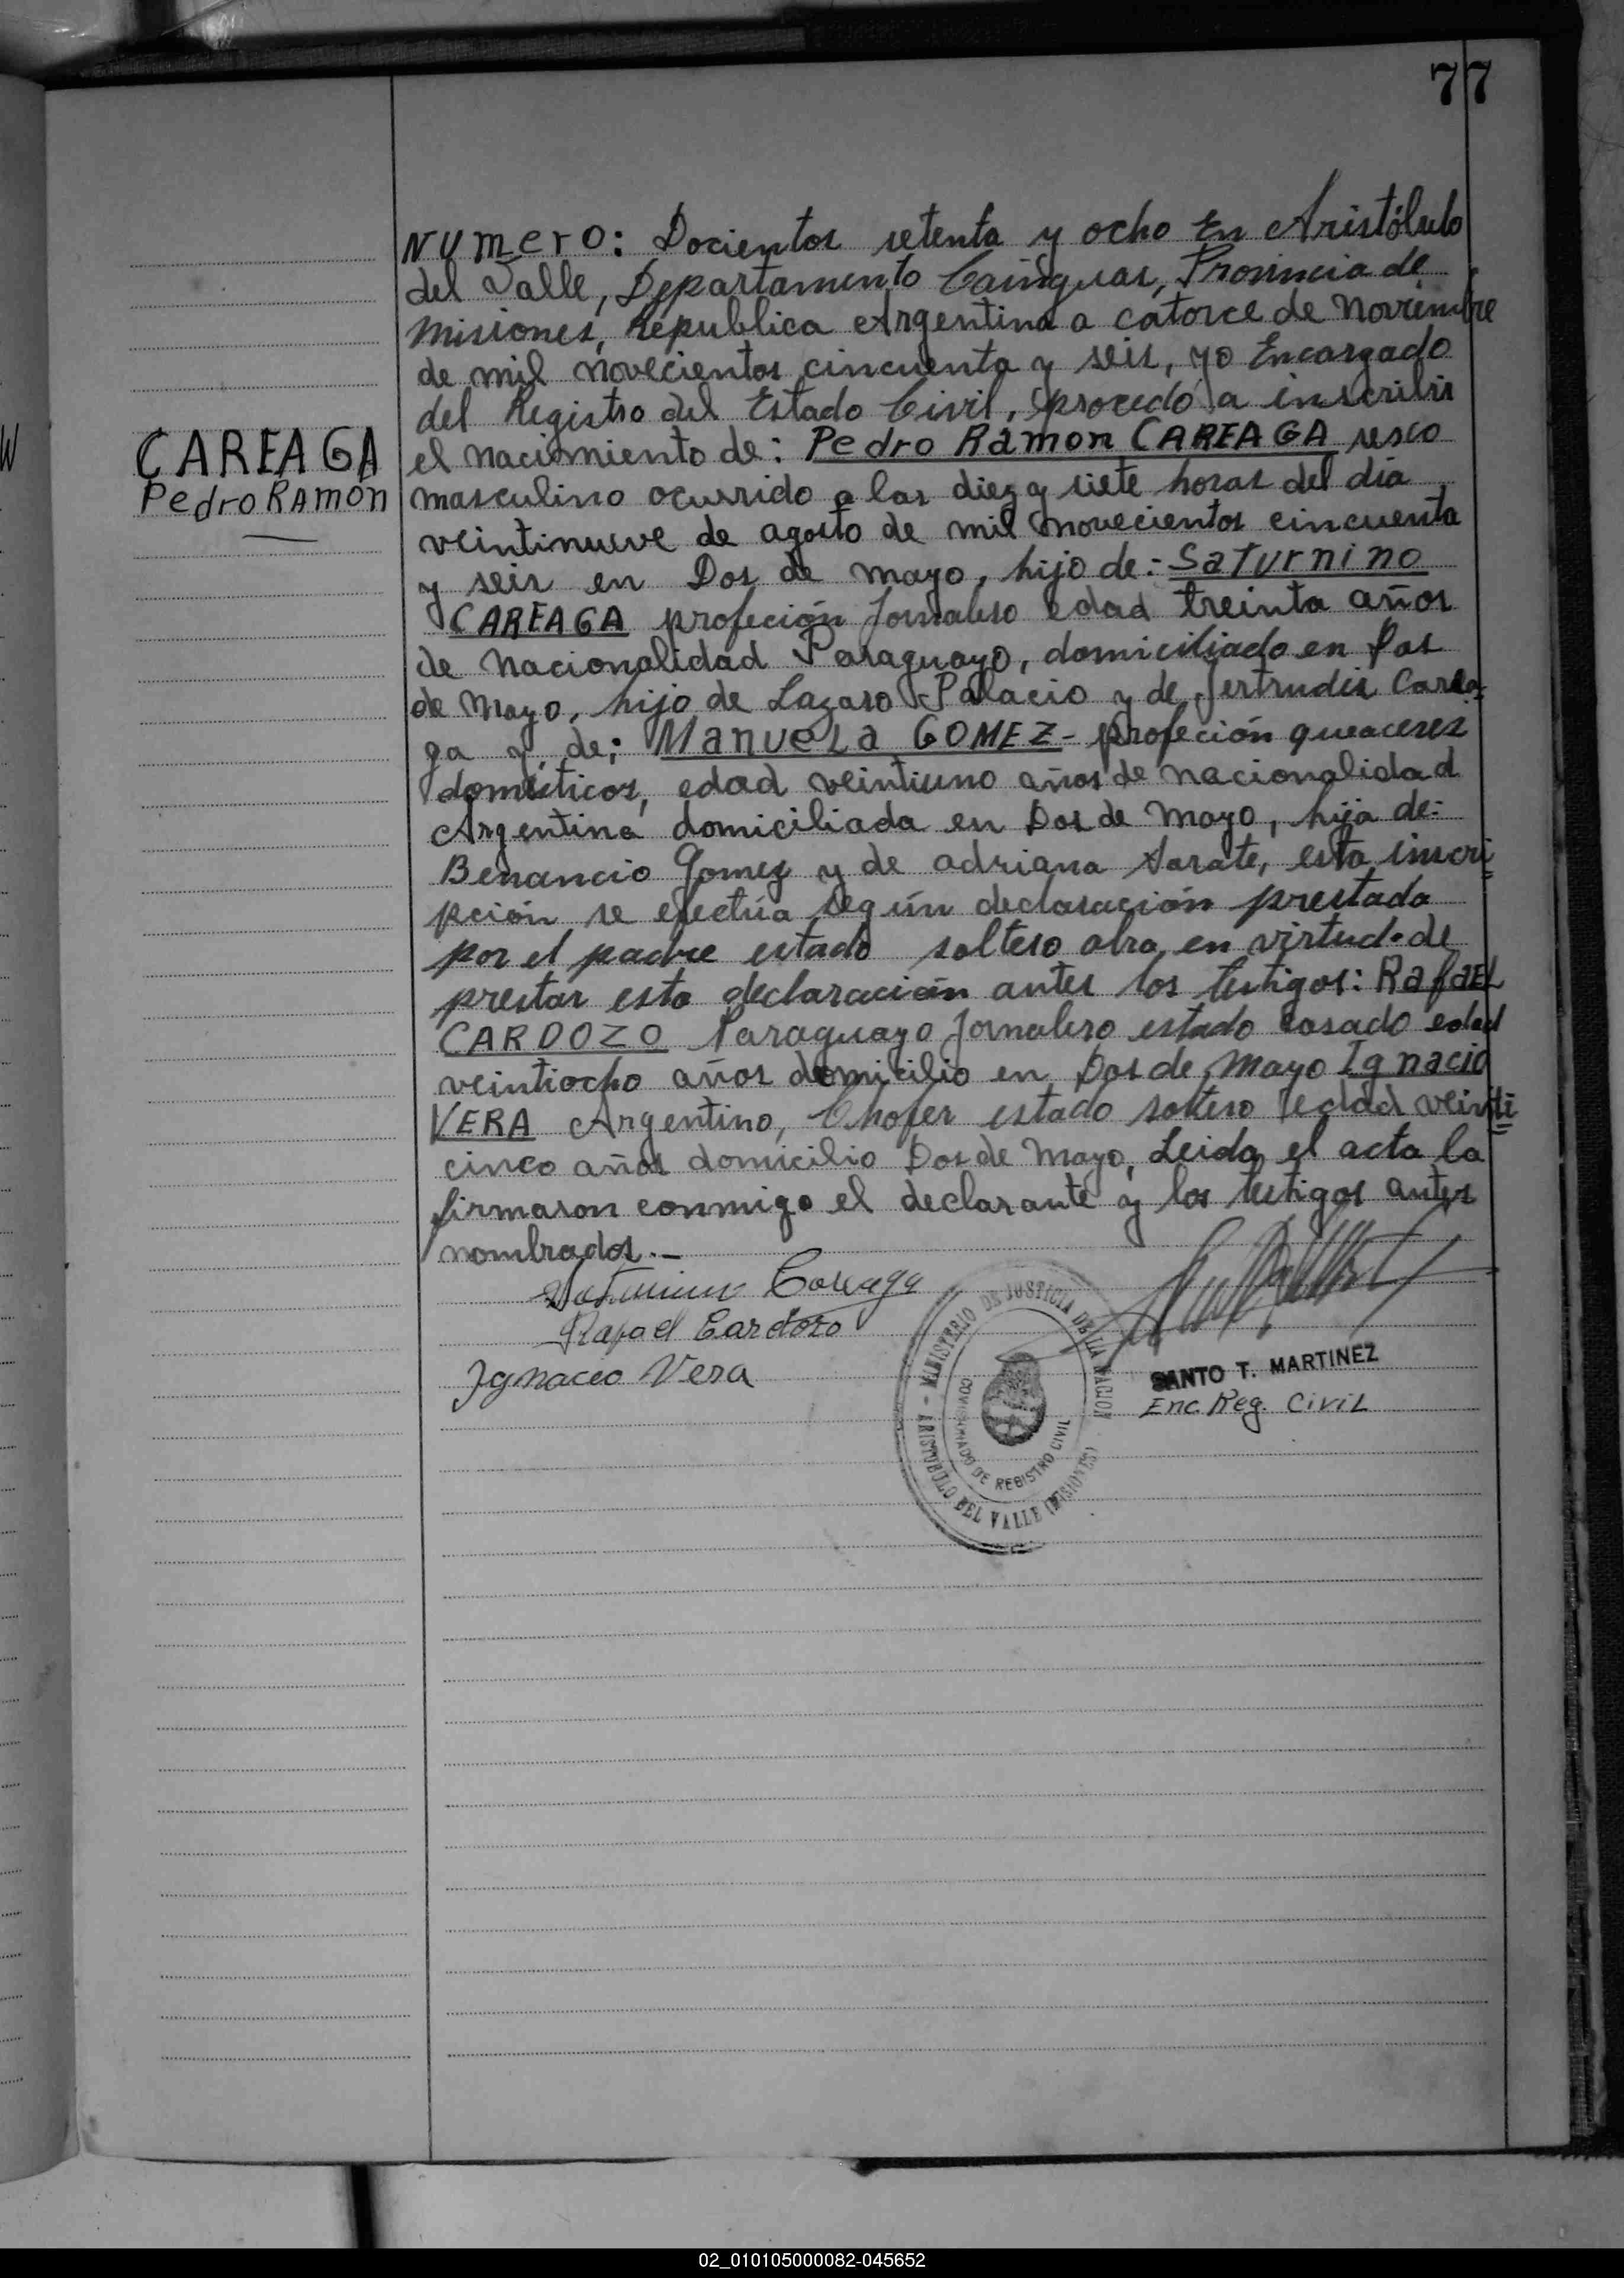 77
NUMERO: Docientos setenta y ocho En Aristóbulo
del Valle, Departamento Cainguas, Provincia de
Misiones, Republica Argentina a catorce de Noviembre
de mil novecientos cincuenta y seis, yo Encargado
del Registro del Estado Civil, procedo a inscribir
CAREAGA
el nacimiento de: Pedro Ramon CAREAGA sexo
Pedro RAMON
masculino ocurrido a las diez y siete horas del día
veintinueve de agosto de mil novecientos cincuenta
y seis en Dos de mayo, hijo de: SaTurnino
CAREAGA profeción Jornalero edad treinta años
de nacionalidad Paraguayo, domiciliado en Dos
de Mayo, hijo de Lazaro Palacio y de Jertrudis Carea-
ga y de: ManueLa GOMEZ - profeción queaceres
domesticos, edad veintiuno años de nacionalidad
Argentina domiciliada en Dos de Mayo, hija de:
Benancio Gomez y de adriana Sarate, esta inscri
pción se efectúa según declaración prestada
por el padre estado soltero obra en virtud de
prestar esta declaración antes los testigos: RafaEL
CARDOZO Paraguayo Jornalero estado casado edad
veintiocho años domicilio en Dos de Mayo Ignacio
VERA Argentino, Chofer estado soltero edad veinti
cinco años domicilio Dos de Mayo, Leida el acta la
firmaron conmigo el declarante y los testigos antes
nombrados.-
Saturnino Careaga
Rafael Cardozo
Ignacio Vera
MINISTERIO DE JUSTICIA DE LA NACION - ARISTOBULO DEL VALLE (MISIONES)
DE REGISTRO CIVIL
SANTO T. MARTINEZ
Enc. Reg. CiviL
02_010105000082-045652